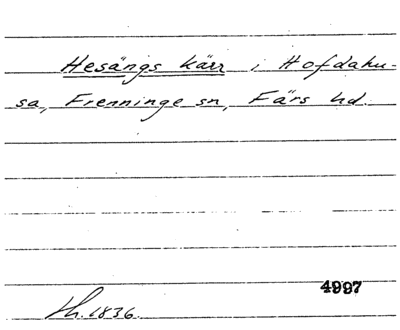 Hesängs kärr i Hofdahu-
sa, Frenninge sn, Färs hd.
4997
Lh. 1836.